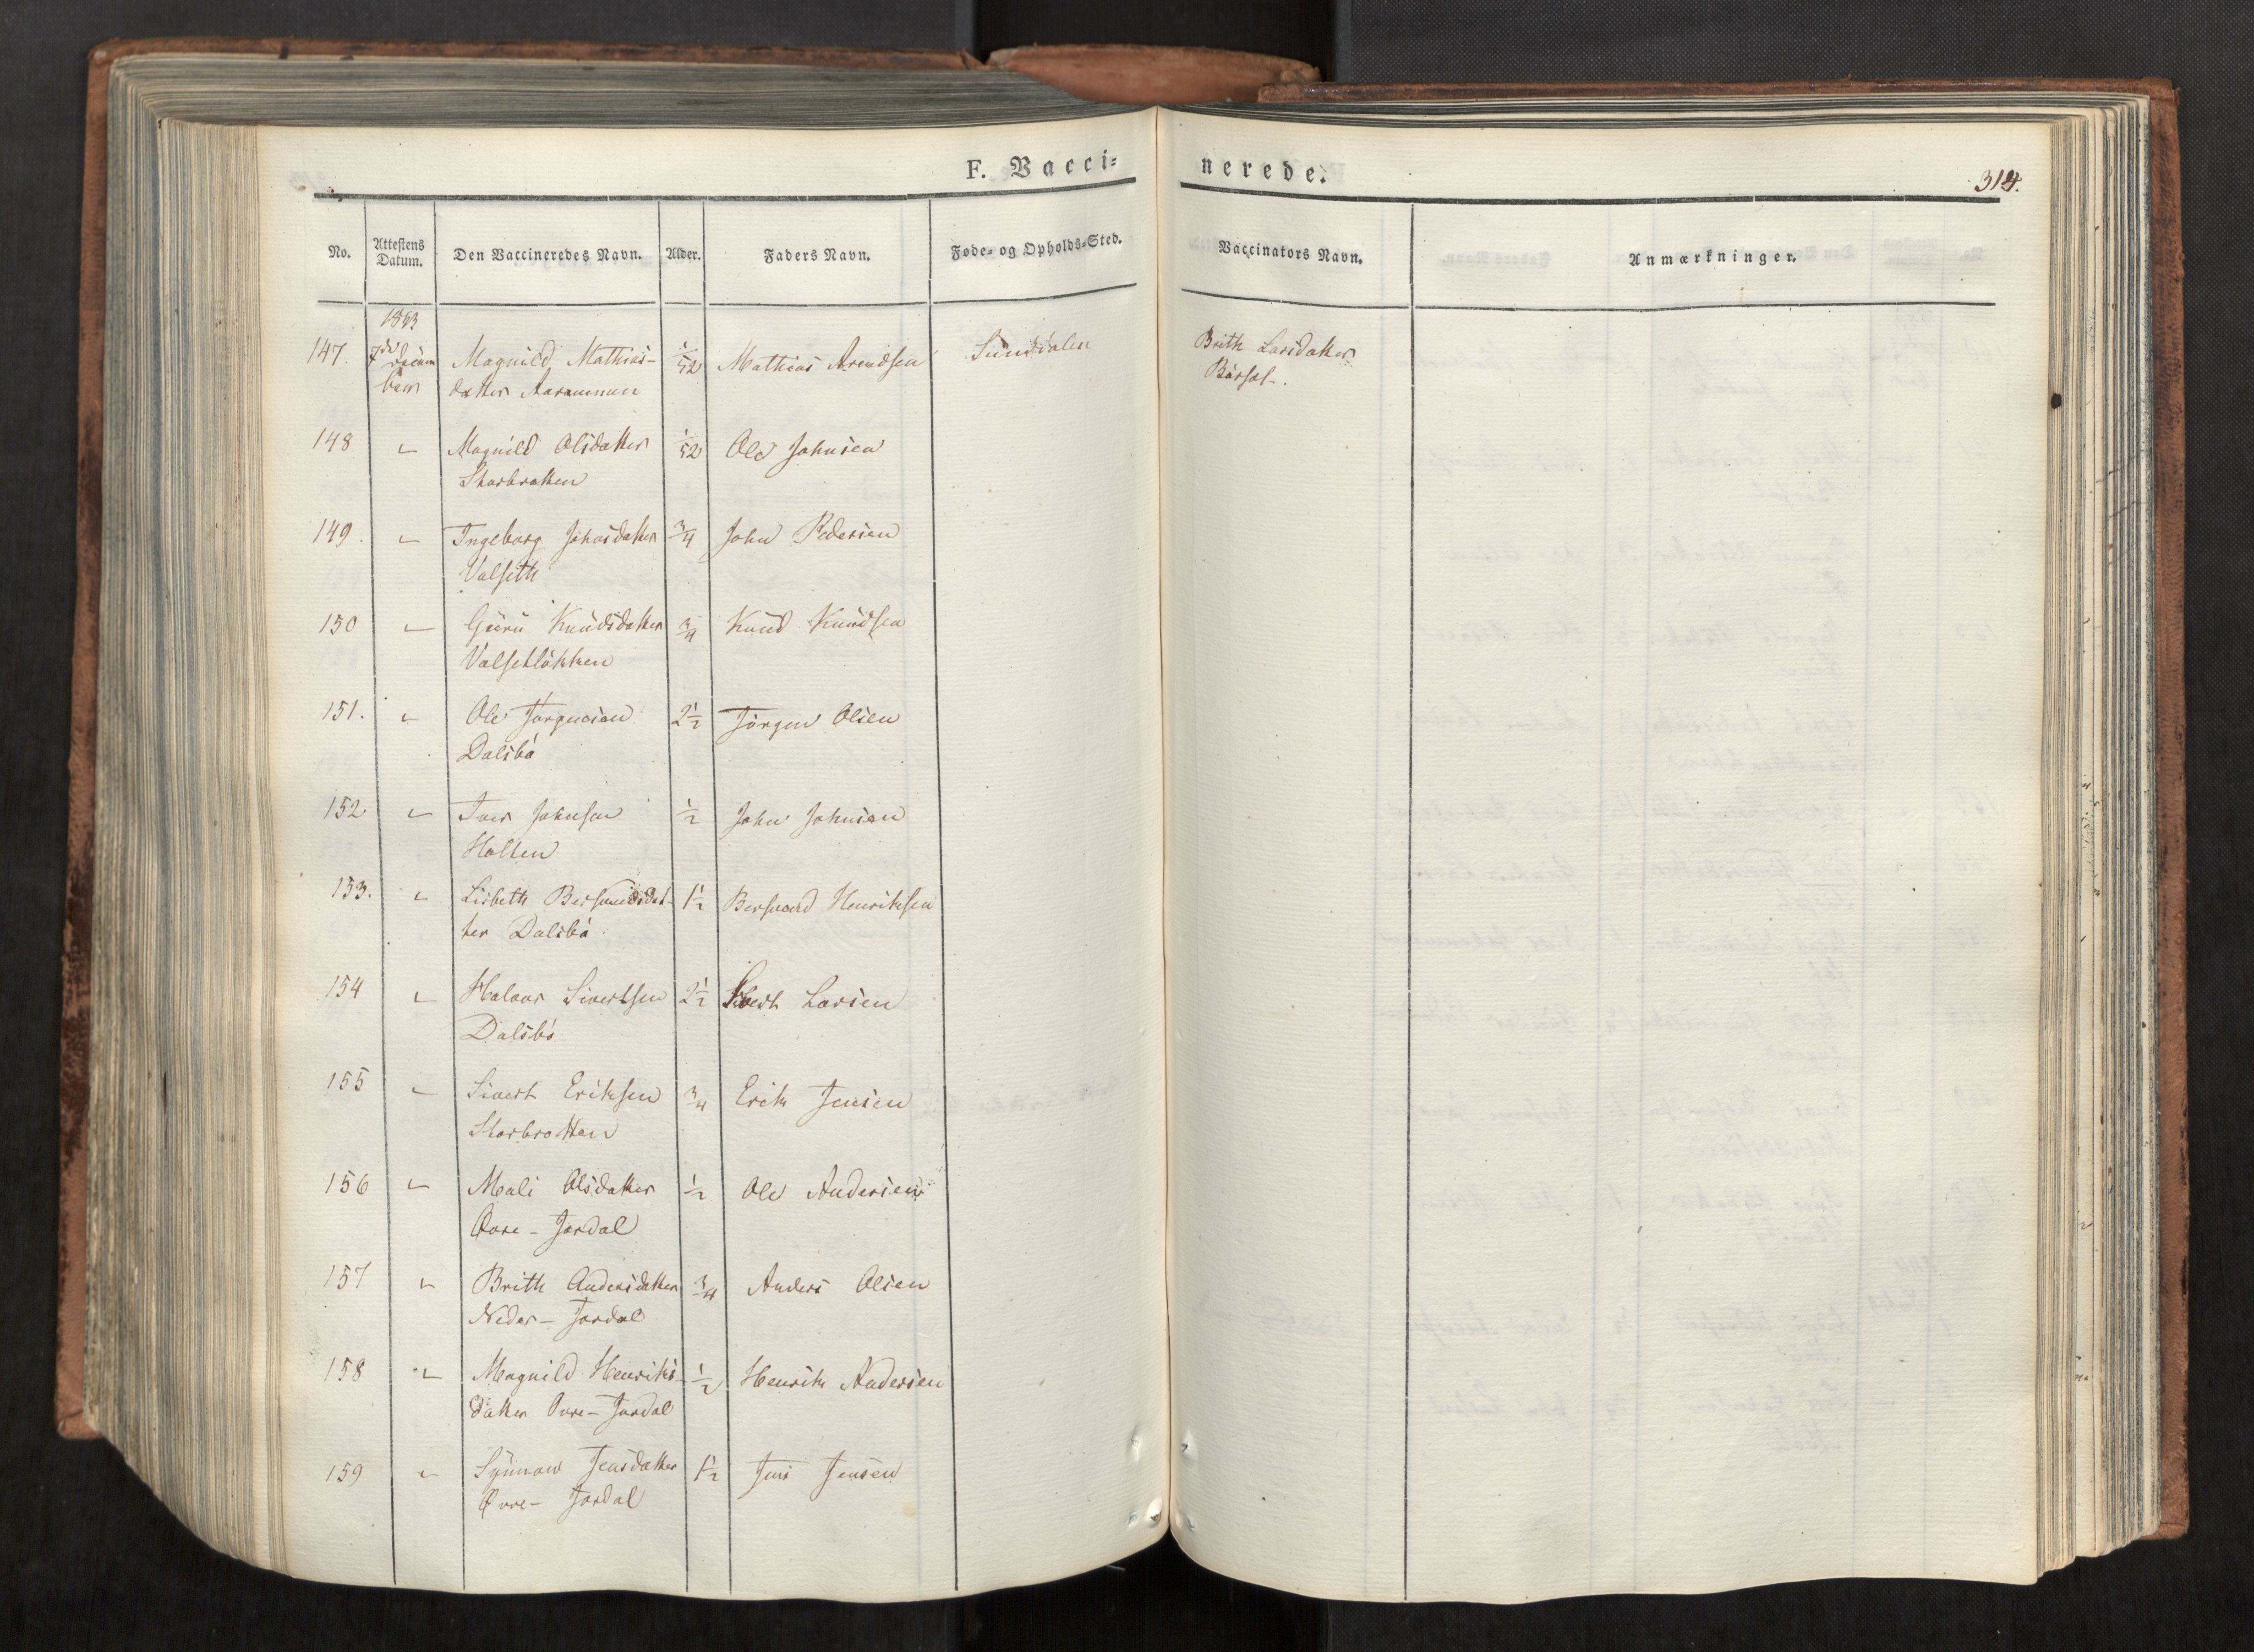 F. Vacci-
nerede.
314.
No. Attestens Datum. Den Vaccineredes Navn. Alder. Faders Navn. Føde- og Opholds-Sted. Vaccinators Navn. Anmærkninger.
1843
147. 7de Magnild Mathias- 1/52 Mathias Arendsen Sundalen Brith Larsdatter
Decem
ber datter
148 Magnild Olsdatter 1/52 Ole Johnsen
Storbrotten
149. Ingeborg Johnsdatter 3/4 John Pedersen
Valseth
150 Guru Knudsdatter 3/4 Knud Knudsen
Valsetløkken
151. Ole Jørgensen 2 1/2 Jørgen Olsen
Dalsbø
152 Iver Johnsen 1/2 John Johnsen
Holten
153. Lisbeth 1 1/2 Henriksen
ter Dalsbø
154 Halvor Sivertsen 2 1/2 Sivert Larsen
Dalsbø
155 Sivert Eriksen 3/4 Erik Jensen
Storbrotten
156 Mali Olsdatter 1/2 Ole Andersen
Øvre- Jordal
157 Brith Andersdatter 3/4 Anders Olsen
Neder- Jordal
158 Magnild Henriks- 1/2 Henrik Andersen
datter Øvre- Jordal
159 Synnøv Jensdatter 1 1/2 Jens Jensen
Øvre- Jordal